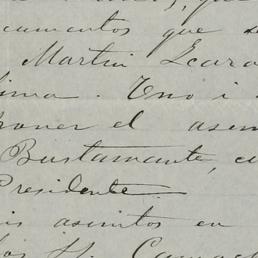 que
cumentos que s
Martin Lcar
ima. Uno i
poner el asun
Bustamante, cu
Presidente.
is asuntos en
H. Camac